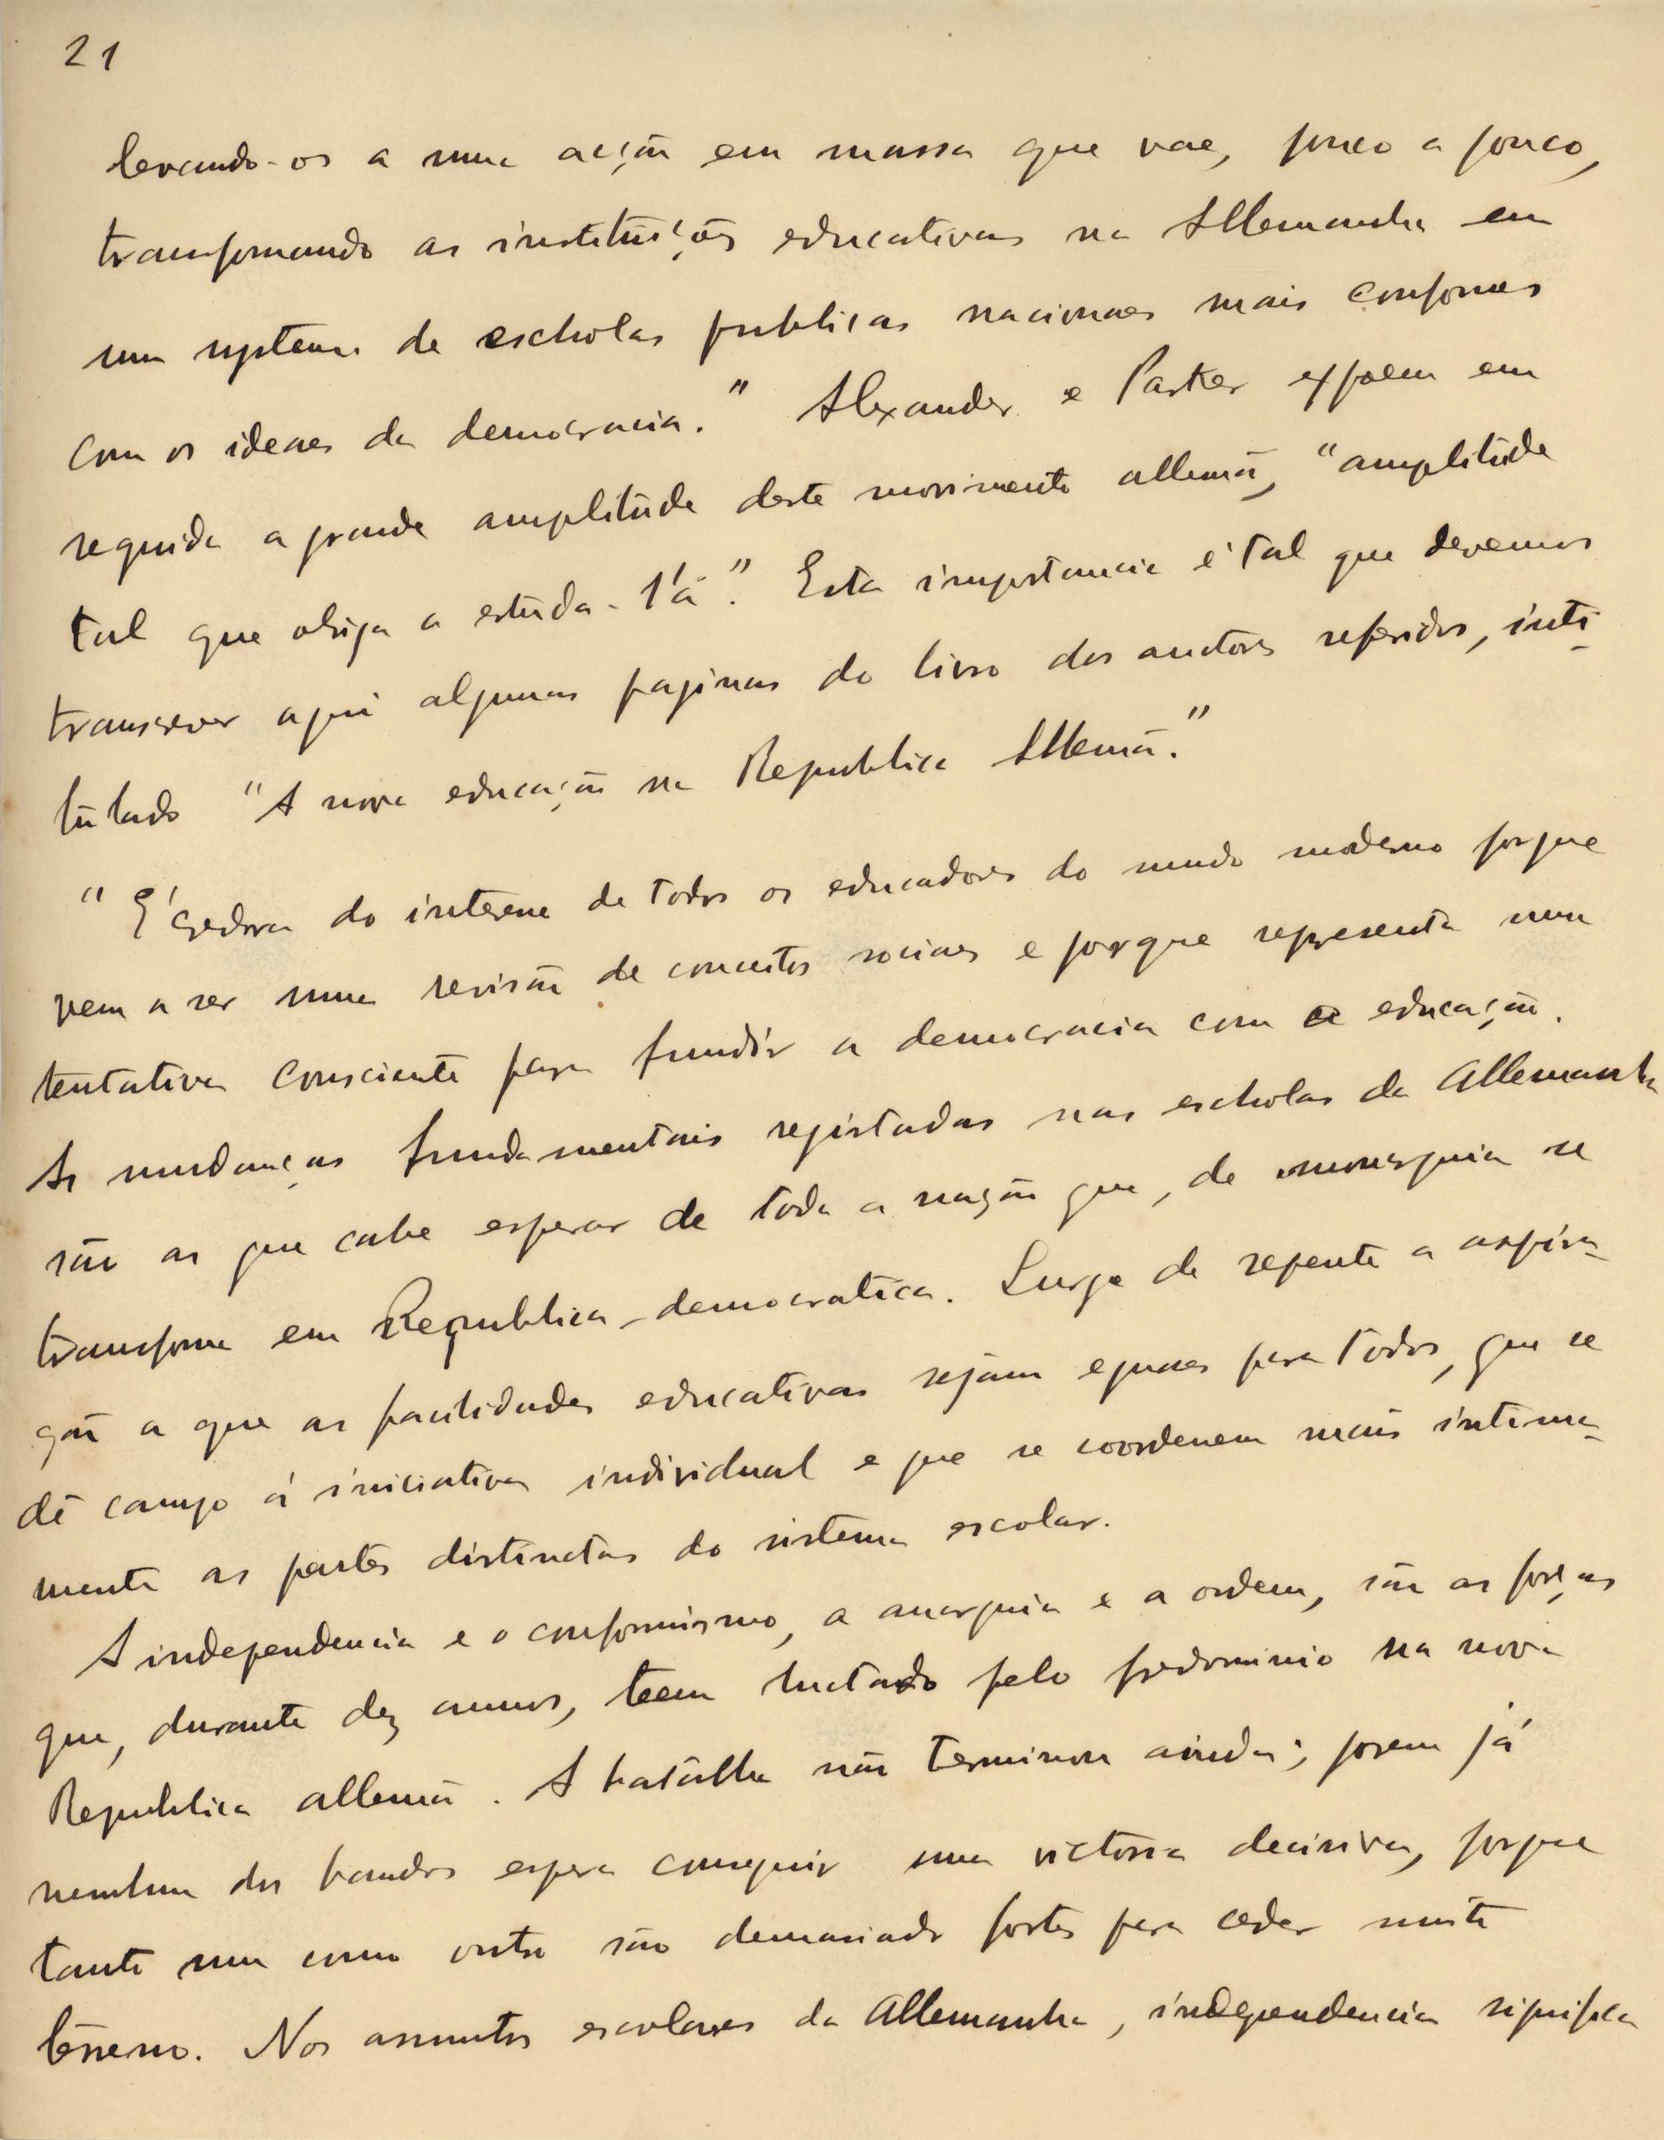 21
levando-os a uma acção em massa que vae, pouco a pouco,
transformando as instituições educativas na Allemanha em
um systema de escholas publicas nacionaes mais conformes
com os ideaes da democracia." Alexander e Parker expõem em
seguida a grande amplitude deste movimento allemã, "amplitude
tal que obriga a estuda-l'a". Esta importancia é tal que devemos
transcrever aqui algumas paginas do livro dos auctores referidos, inti-
tulado "A nova educação na Republica Allemã."
"É credora do interesse de todos os educadores do mundo moderno porque
vem a ser uma revisão de conceitos sociaes e porque representa uma
tentativa consciente para fundir a democracia com a educação.
As mudanças fundamentais registadas nas escholas da Allemanha
são as que cabe esperar de toda a nação que, de monarquia se
transforma em Republica-democratica. Surge de repente a aspira-
ção a que as facilidades educativas sejam eguaes para todos, que se
dê campo á iniciativa individual e que se coordenem mais intima-
mente as partes distinctas do sistema escolar.
A independencia e o conformismo, a anarquia e a ordem, são as forças
que, durante dez annos, teem luctado pelo predominio na nova
Republica allemã. A batalha não terminou ainda; porem já
nenhum dos bandos espera conseguir uma victoria decisiva, porque
tanto um como outro são demasiado fortes para ceder muito
terreno. Nos assuntos escolares da Allemanha, independencia significa